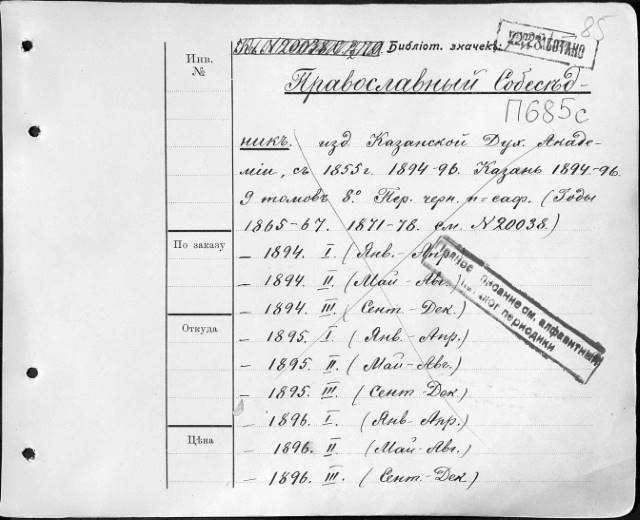 85
Библіот. значекъ:
Инв.
№
Православный Собесѣд-
П685с
никъ. изд. Казанской Дух. Акаде-
міи, съ 1855г. 1894-96. Казань 1894-96.
9 томовъ 8º. Пер. черн. п=саф. (Годы
1865-67. 1871-78. см. N 20038.)
По заказу
Откуда
Цѣна
– 1894. I. (Янв.-Апр.
– 1894. II. (Май-Авг.)
– 1894. III. (Сент-Дек.)
– 1895. I. (Янв.-Апр.)
– 1895. II. (Май-Авг.)
– 1895. III. (Сент-Дек.)
– 1896. I. (Янв-Апр.)
– 1896. II. (Май-Авг.)
– 1896. III. (Сент.-Дек.)
описание см. алфавитный
каталог периодики